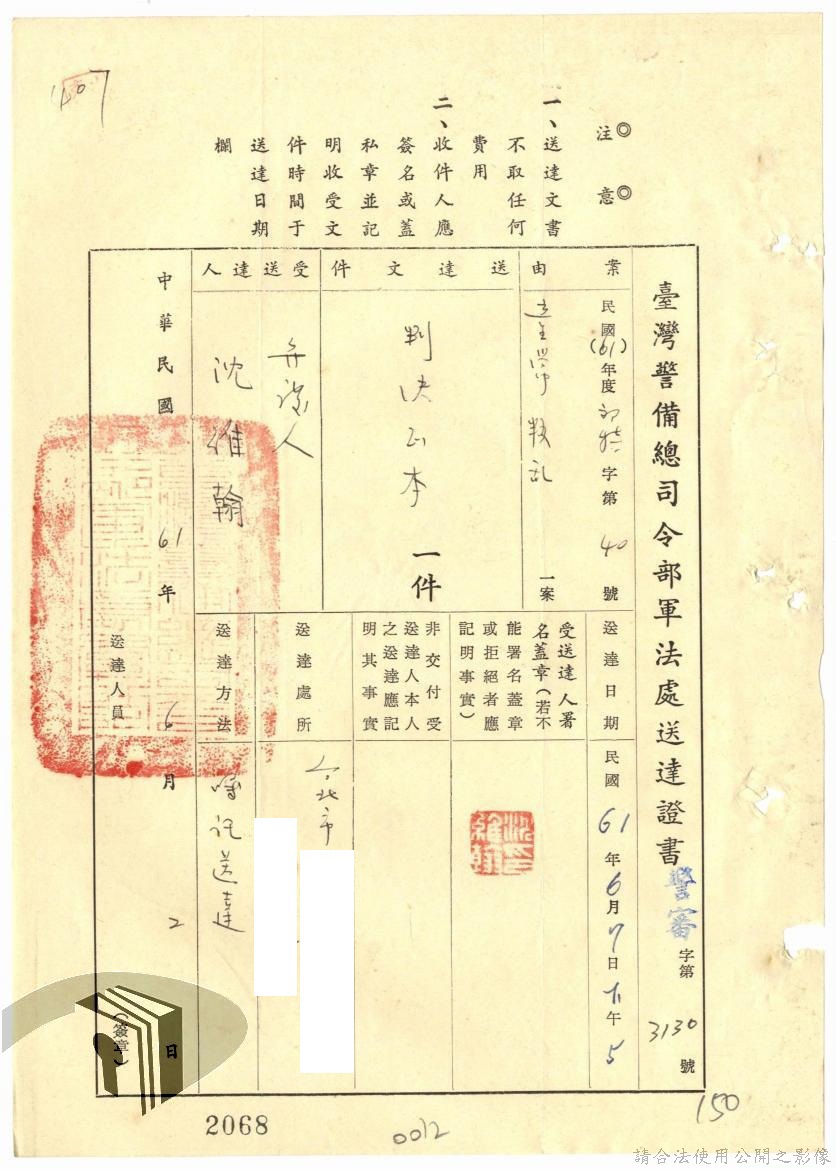 ◎注意◎
一、送達文書
不取任何
費用
二、收件人應
簽名或蓋
私章並記
明收受文
件時間于
送達日期
欄
臺灣警備總司令部軍法處送達證書
警審字第3130號
案由
民國(61)年度
字第40號
叛乱
一案
送達文件
判決正本
一件
受送達人
弁護人
沈維翰
送達日期
民國61年6月7日下午5
受送達人署
名蓋章(若不
能署名蓋章
或拒絕者應
記明事實)
沈維翰
非交付受
送達人本人
之送達應記
明其事實
送達處所
台北市
送達方法
囑託送達
中華民國61年6月2日
送達人員
(簽章)
2068
0012
150
請合法使用公開之影像